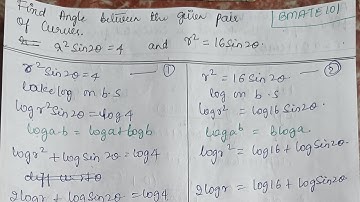 Find Angle between the given pair
Of Curves.
r²Sin2θ=4 and r²=16Sin2θ.
BMATE101
r²Sin2θ=4 — ①
take log on b.s
log r²Sin2θ = log4
log a·b = log a + log b
log r² + log Sin 2θ = log 4
diff w.r.t θ
2log r + log Sin2θ = log 4
r² = 16Sin2θ — ②
log on b.s
log r² = log 16 Sin2θ
log aᵇ = b log a
log r² = log 16 + log Sin2θ
2log r = log 16 + log Sin2θ